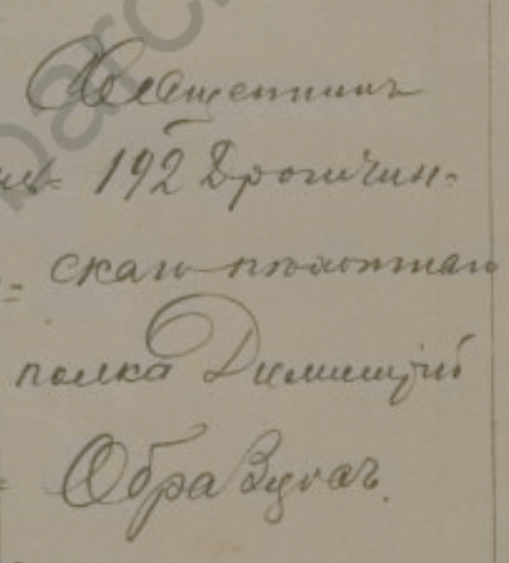 Священникъ
192 Дрогичин-
скаго пѣхотнаго
полка Димитрій
Образцовъ.